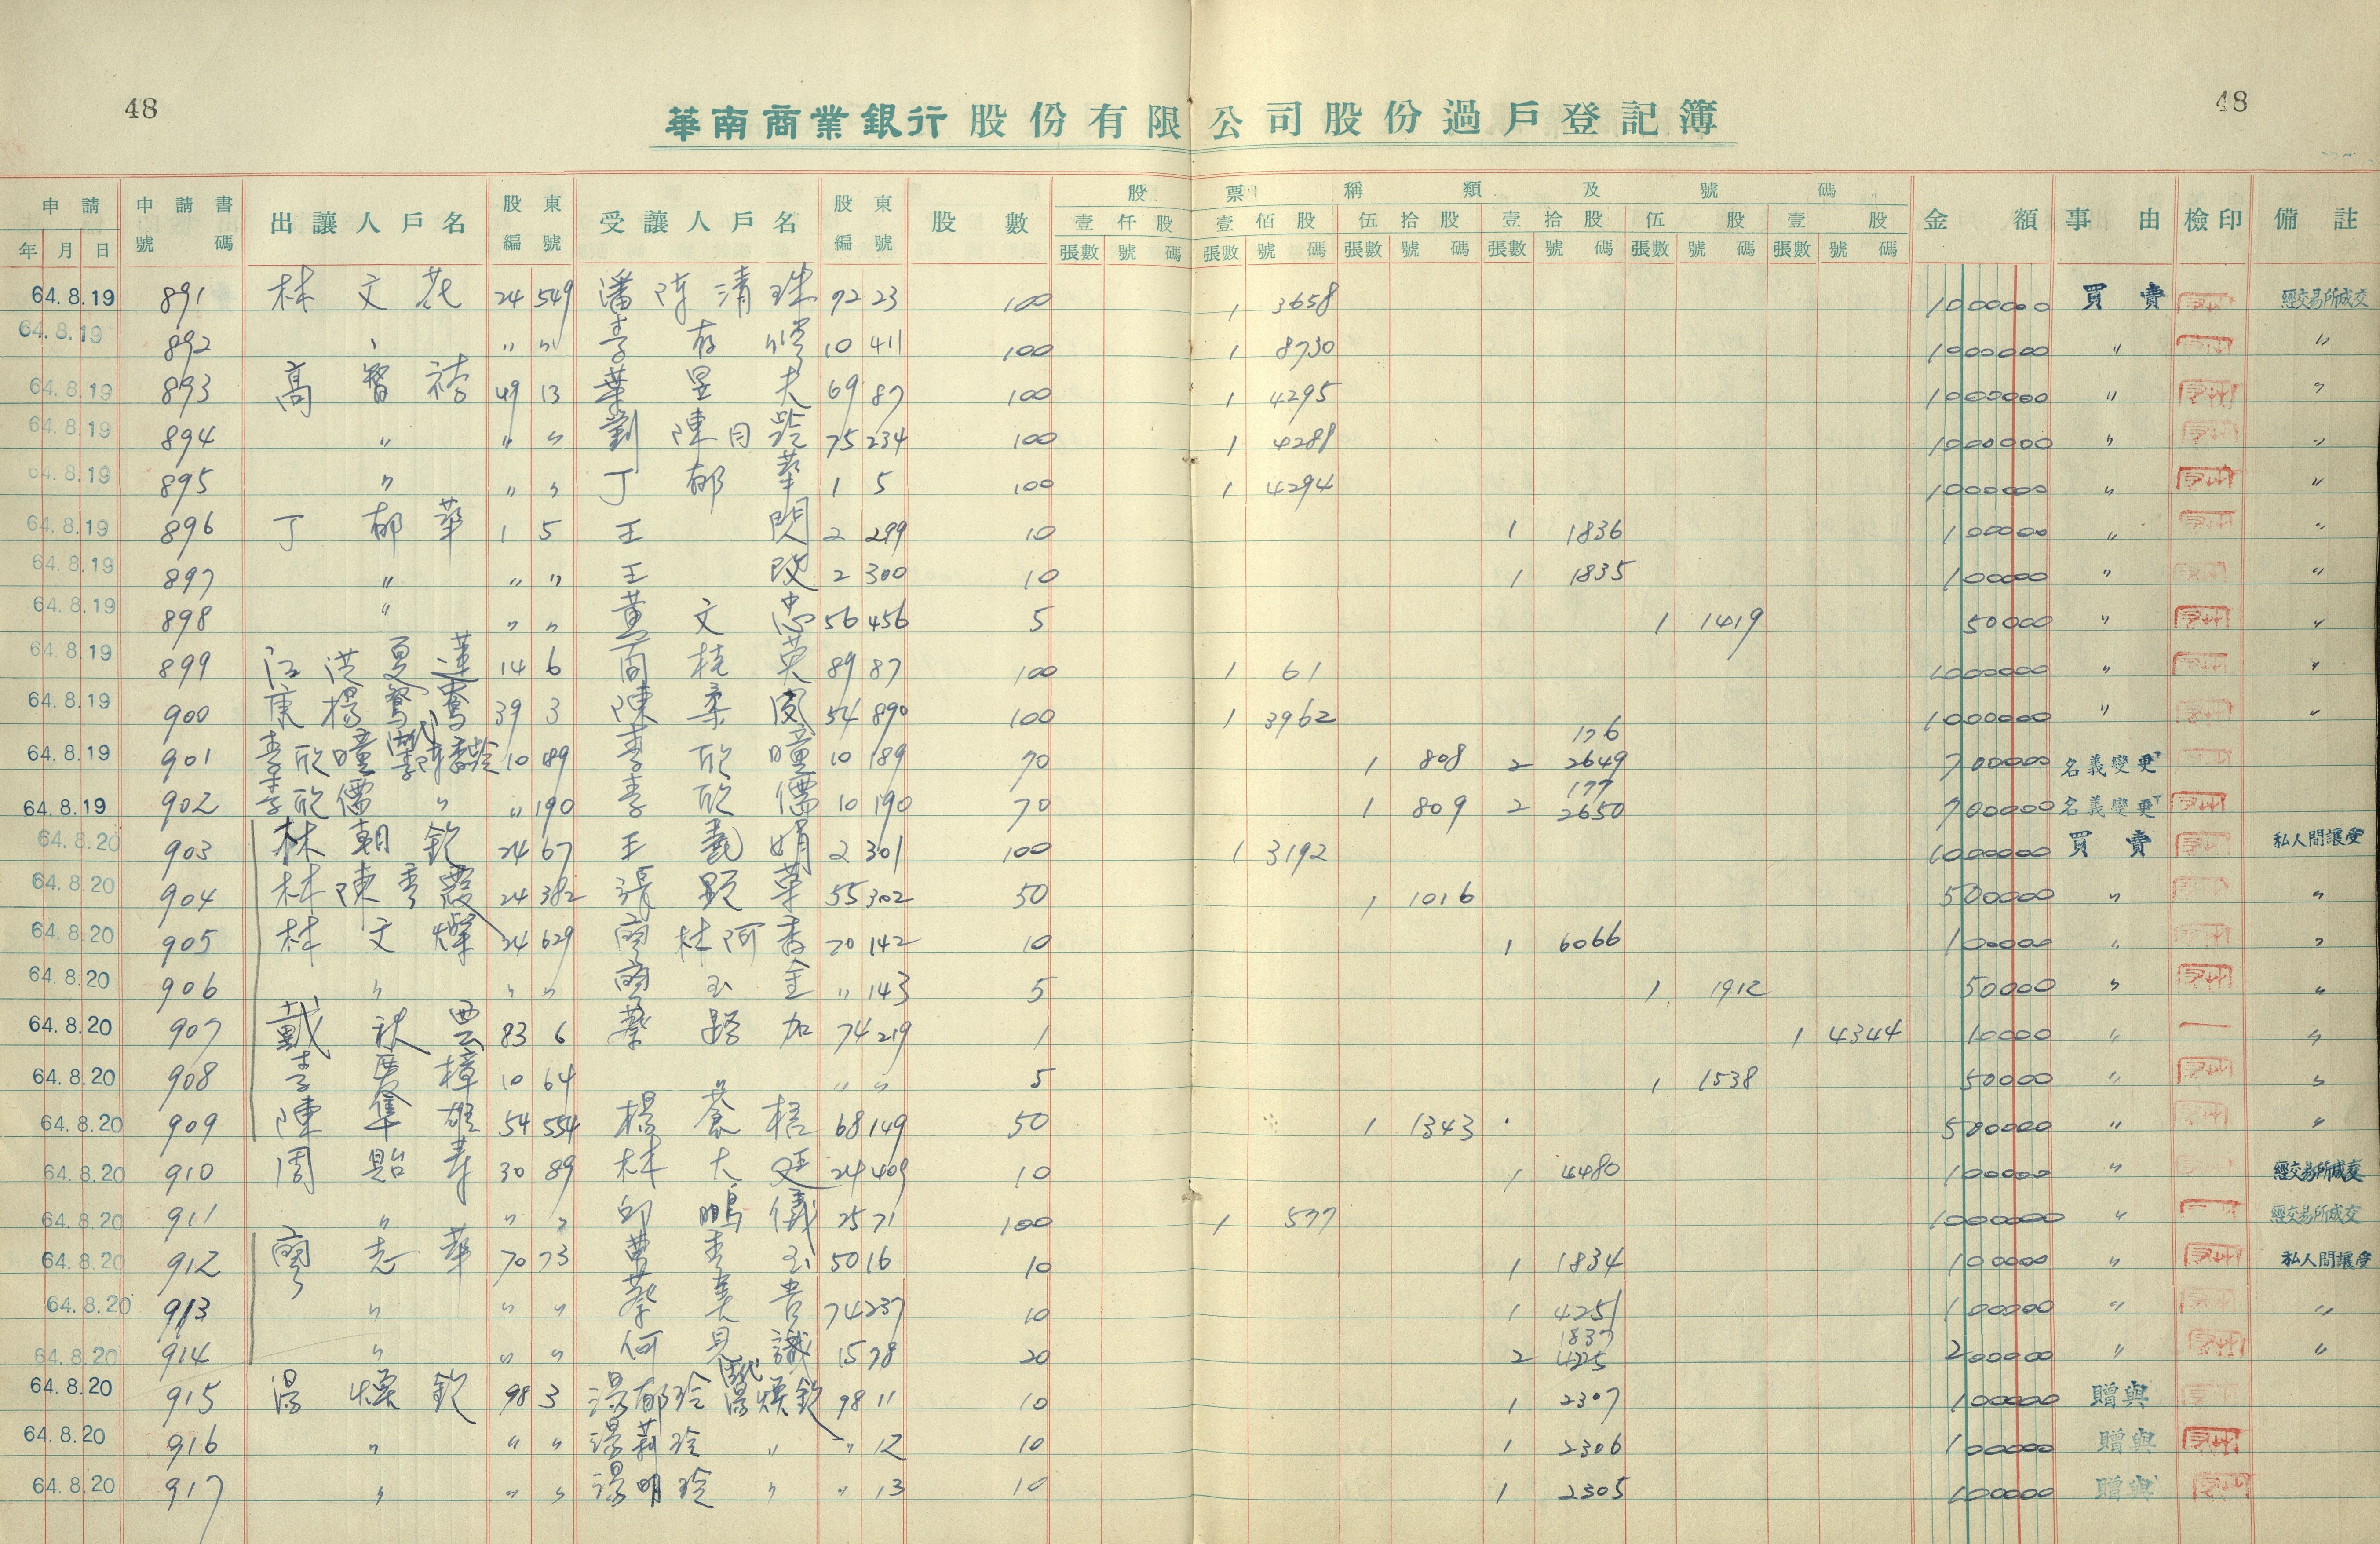 48
48
華南商業銀行股份有限公司股份過戶登記簿
申請 年 月 日 申請書號碼 出讓人戶名 股東編號 受讓人戶名 股東編號 股數 股票種類及號碼 金額 事由 檢印 備註
壹仟股 壹佰股 伍拾股 壹拾股 伍股 壹股
張數 號碼 張數 號碼 張數 號碼 張數 號碼 張數 號碼 張數 號碼
64.8.19 891 林文花 24 549 潘陳清珠 72 23 100 1 3658 1000000 買賣 經交易所成交
64.8.19 892 〃 〃 李存 10 411 100 1 8730 1000000 〃 〃
64.8.19 893 高智 49 13 葉昱夫 69 87 100 1 4295 1000000 〃 〃
64.8.19 894 〃 〃 〃 劉陳月 75 234 100 1 4288 1000000 〃 〃
64.8.19 895 〃 〃 〃 丁郁華 1 5 100 1 4294 1000000 〃 〃
64.8.19 896 丁郁華 1 5 王閃 2 299 10 1 1836 100000 〃 〃
64.8.19 897 〃 〃 〃 王 2 300 10 1 1835 100000 〃 〃
64.8.19 898 〃 〃 〃 黃文忠 56 456 5 1 1419 50000 〃 〃
64.8.19 899 江洪夏蓮 14 6 簡桂英 89 87 100 1 61 1000000 〃 〃
64.8.19 900 康楊鴛鴦 39 3 陳柔 54 890 100 1 3962 1000000 〃 〃
64.8.19 901 李欣曈 10 189 李欣曈 10 189 70 1 808 2 176 2649 700000 名義變更
64.8.19 902 李欣儒 〃 〃 190 李欣儒 10 190 70 1 809 2 177 2650 700000 名義變更
64.8.20 903 林朝欽 24 67 王娟 2 301 100 1 3192 1000000 買賣 私人間讓受
64.8.20 904 林陳秀霞 24 382 張 55 302 50 1 1016 500000 〃 〃
64.8.20 905 林文燦 24 629 廖林阿香 70 142 10 1 6066 100000 〃 〃
64.8.20 906 〃 〃 〃 廖玉金 〃 143 5 1 1912 50000 〃 〃
64.8.20 907 戴秋雲 83 6 蔡路加 74 219 1 1 4344 10000 〃 〃
64.8.20 908 李樟 10 64 〃 〃 〃 5 1 1538 50000 〃 〃
64.8.20 909 陳隼雄 54 554 楊蒼梧 68 149 50 1 1343 500000 〃 〃
64.8.20 910 周貽壽 30 89 林大廷 24 409 10 1 4480 100000 〃 經交易所成交
64.8.20 911 〃 〃 〃 邱鵬儀 25 71 100 1 577 1000000 〃 經交易所成交
64.8.20 912 廖志華 70 73 曹秀玉 50 16 10 1 1834 100000 〃 私人間讓受
64.8.20 913 〃 〃 〃 蔡美 74 237 10 1 4251 100000 〃 〃
64.8.20 914 〃 〃 〃 何見識 15 78 20 2 1837 4225 200000 〃 〃
64.8.20 915 湯煥欽 98 3 湯郁玲 湯煥欽 98 11 10 1 2307 100000 贈與
64.8.20 916 〃 〃 〃 湯莉玲 〃 〃 12 10 1 2306 100000 贈與
64.8.20 917 〃 〃 〃 湯明玲 〃 〃 13 10 1 2305 100000 贈與